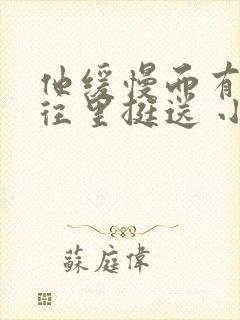 他缓慢而有
往里挺送 小
蘇庭偉